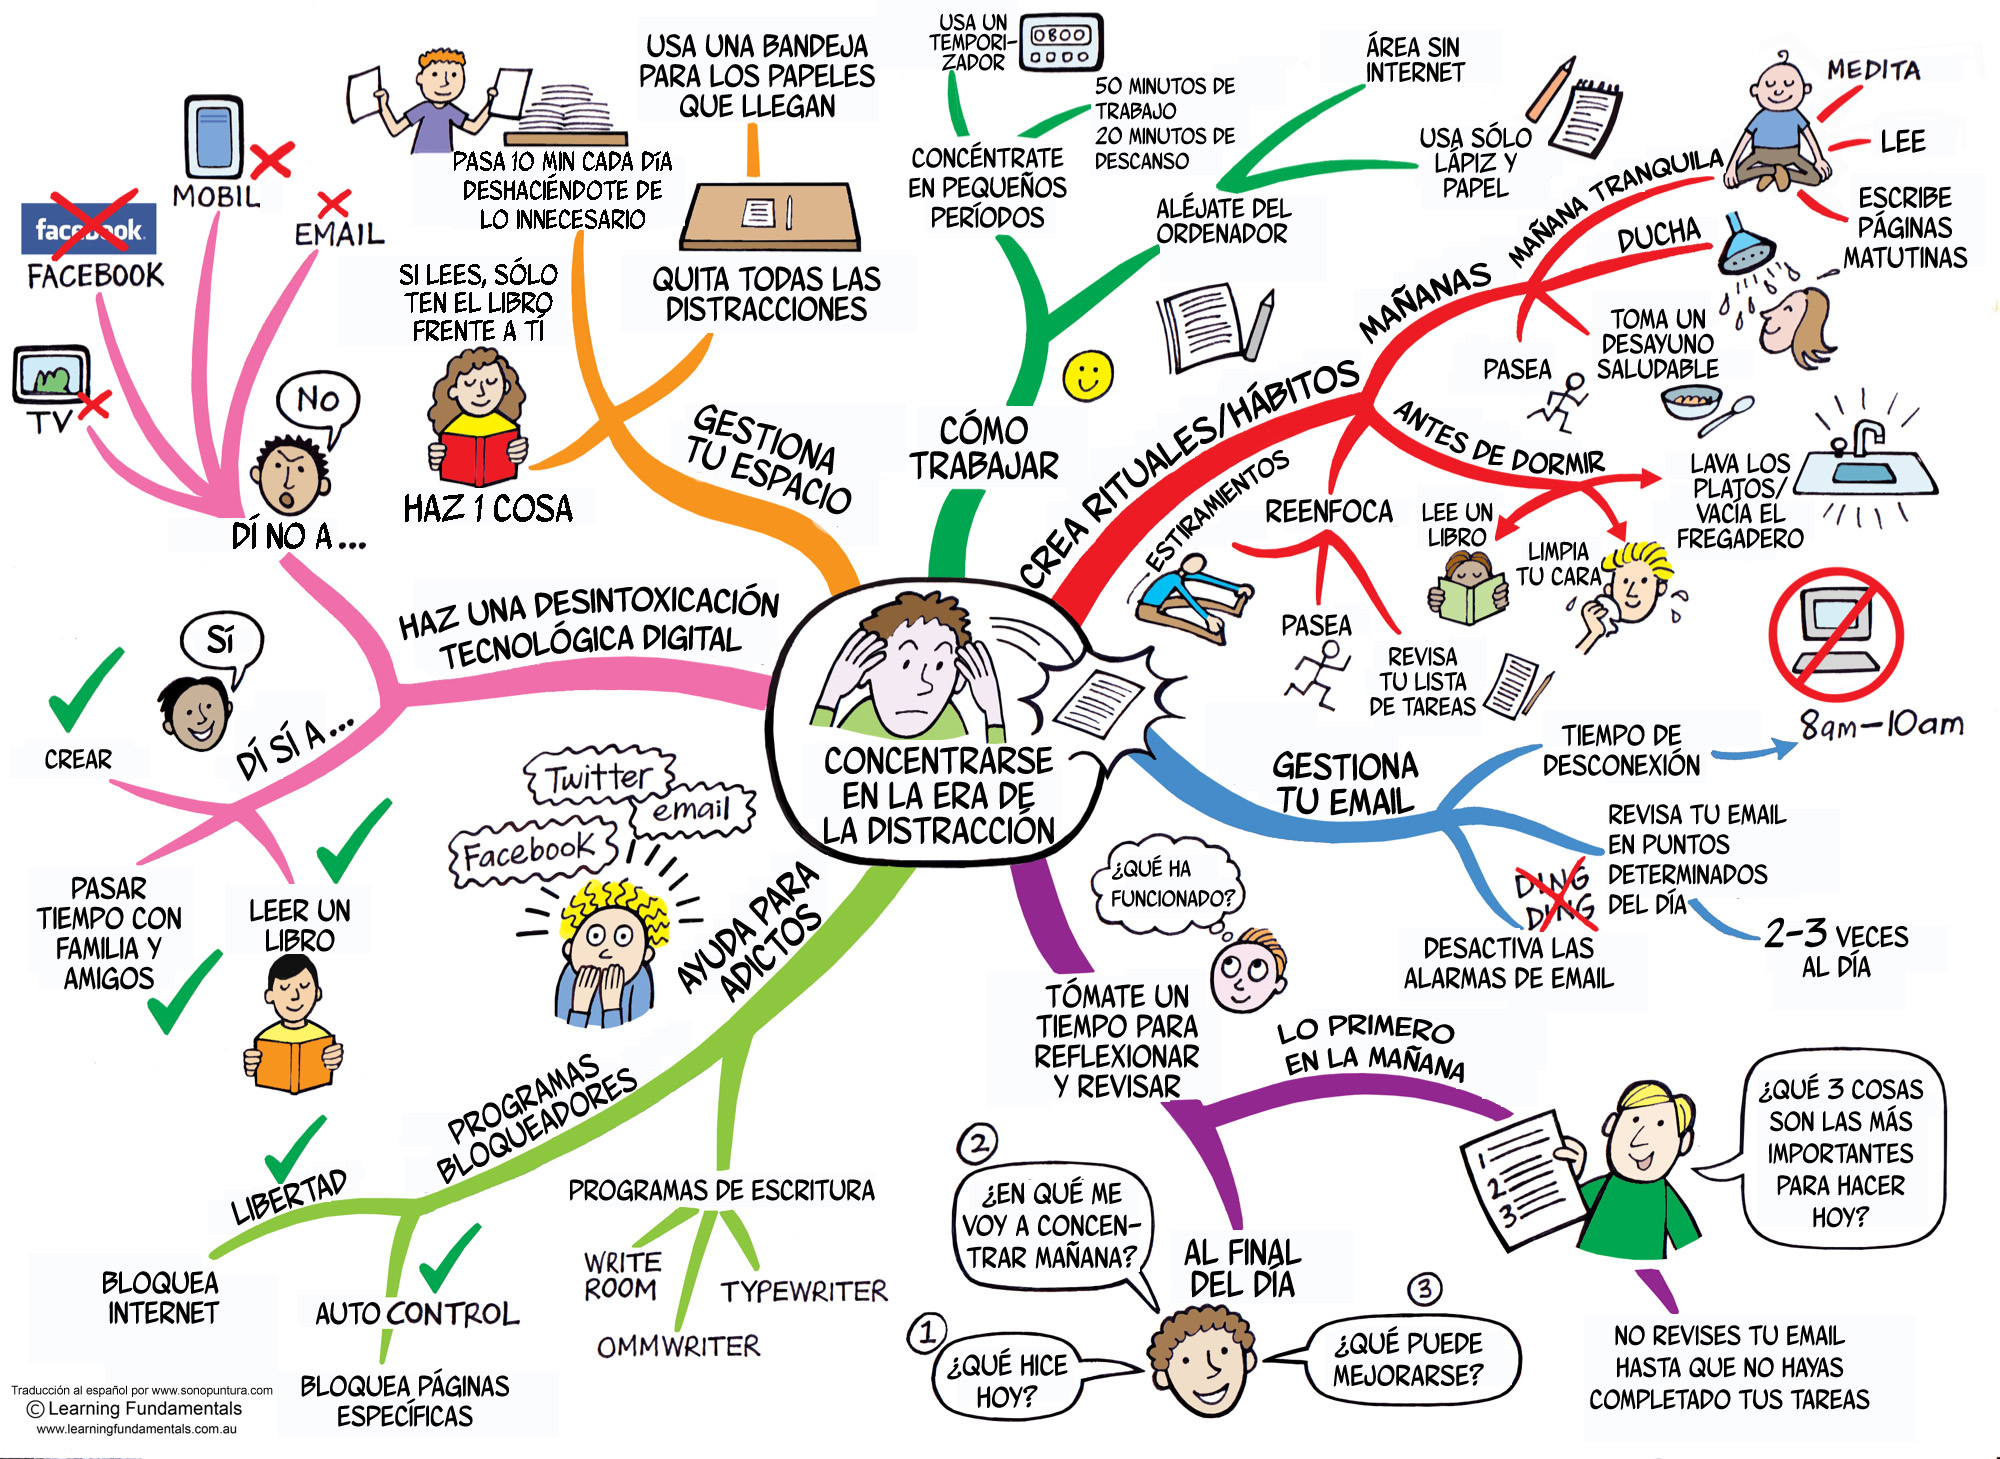 CONCENTRARSE
EN LA ERA DE
LA DISTRACCIÓN
USA UNA BANDEJA
PARA LOS PAPELES
QUE LLEGAN
PASA 10 MIN CADA DÍA
DESHACIÉNDOTE DE
LO INNECESARIO
SI LEES, SÓLO
TEN EL LIBRO
FRENTE A TÍ
QUITA TODAS LAS
DISTRACCIONES
HAZ 1 COSA
GESTIONA
TU ESPACIO
USA UN
TEMPORI-
ZADOR
0800
50 MINUTOS DE
TRABAJO
20 MINUTOS DE
DESCANSO
CONCÉNTRATE
EN PEQUEÑOS
PERÍODOS
ÁREA SIN
INTERNET
USA SÓLO
LÁPIZ Y
PAPEL
ALÉJATE DEL
ORDENADOR
CÓMO
TRABAJAR
CREA RITUALES/HÁBITOS
MAÑANAS
MAÑANA TRANQUILA
MEDITA
LEE
ESCRIBE
PÁGINAS
MATUTINAS
DUCHA
TOMA UN
DESAYUNO
SALUDABLE
PASEA
ANTES DE DORMIR
LAVA LOS
PLATOS/
VACÍA EL
FREGADERO
LEE UN
LIBRO
LIMPIA
TU CARA
ESTIRAMIENTOS
REENFOCA
PASEA
REVISA
TU LISTA
DE TAREAS
GESTIONA
TU EMAIL
TIEMPO DE
DESCONEXIÓN
8am-10am
REVISA TU EMAIL
EN PUNTOS
DETERMINADOS
DEL DÍA
2-3 VECES
AL DÍA
DING
DING
DESACTIVA LAS
ALARMAS DE EMAIL
¿QUÉ HA
FUNCIONADO?
TÓMATE UN
TIEMPO PARA
REFLEXIONAR
Y REVISAR
LO PRIMERO
EN LA MAÑANA
1
2
3
¿QUÉ 3 COSAS
SON LAS MÁS
IMPORTANTES
PARA HACER
HOY?
NO REVISES TU EMAIL
HASTA QUE NO HAYAS
COMPLETADO TUS TAREAS
AL FINAL
DEL DÍA
1
¿QUÉ HICE
HOY?
2
¿EN QUÉ ME
VOY A CONCEN-
TRAR MAÑANA?
3
¿QUÉ PUEDE
MEJORARSE?
AYUDA PARA
ADICTOS
Twitter
email
Facebook
PROGRAMAS
BLOQUEADORES
LIBERTAD
BLOQUEA
INTERNET
AUTO CONTROL
BLOQUEA PÁGINAS
ESPECÍFICAS
PROGRAMAS DE ESCRITURA
WRITE
ROOM
OMMWRITER
TYPEWRITER
HAZ UNA DESINTOXICACIÓN
TECNOLÓGICA DIGITAL
DÍ NO A...
NO
TV
facebook
FACEBOOK
MOBIL
EMAIL
DÍ SÍ A...
SÍ
CREAR
PASAR
TIEMPO CON
FAMILIA Y
AMIGOS
LEER UN
LIBRO
Traducción al español por www.sonopuntura.com
© Learning Fundamentals
www.learningfundamentals.com.au